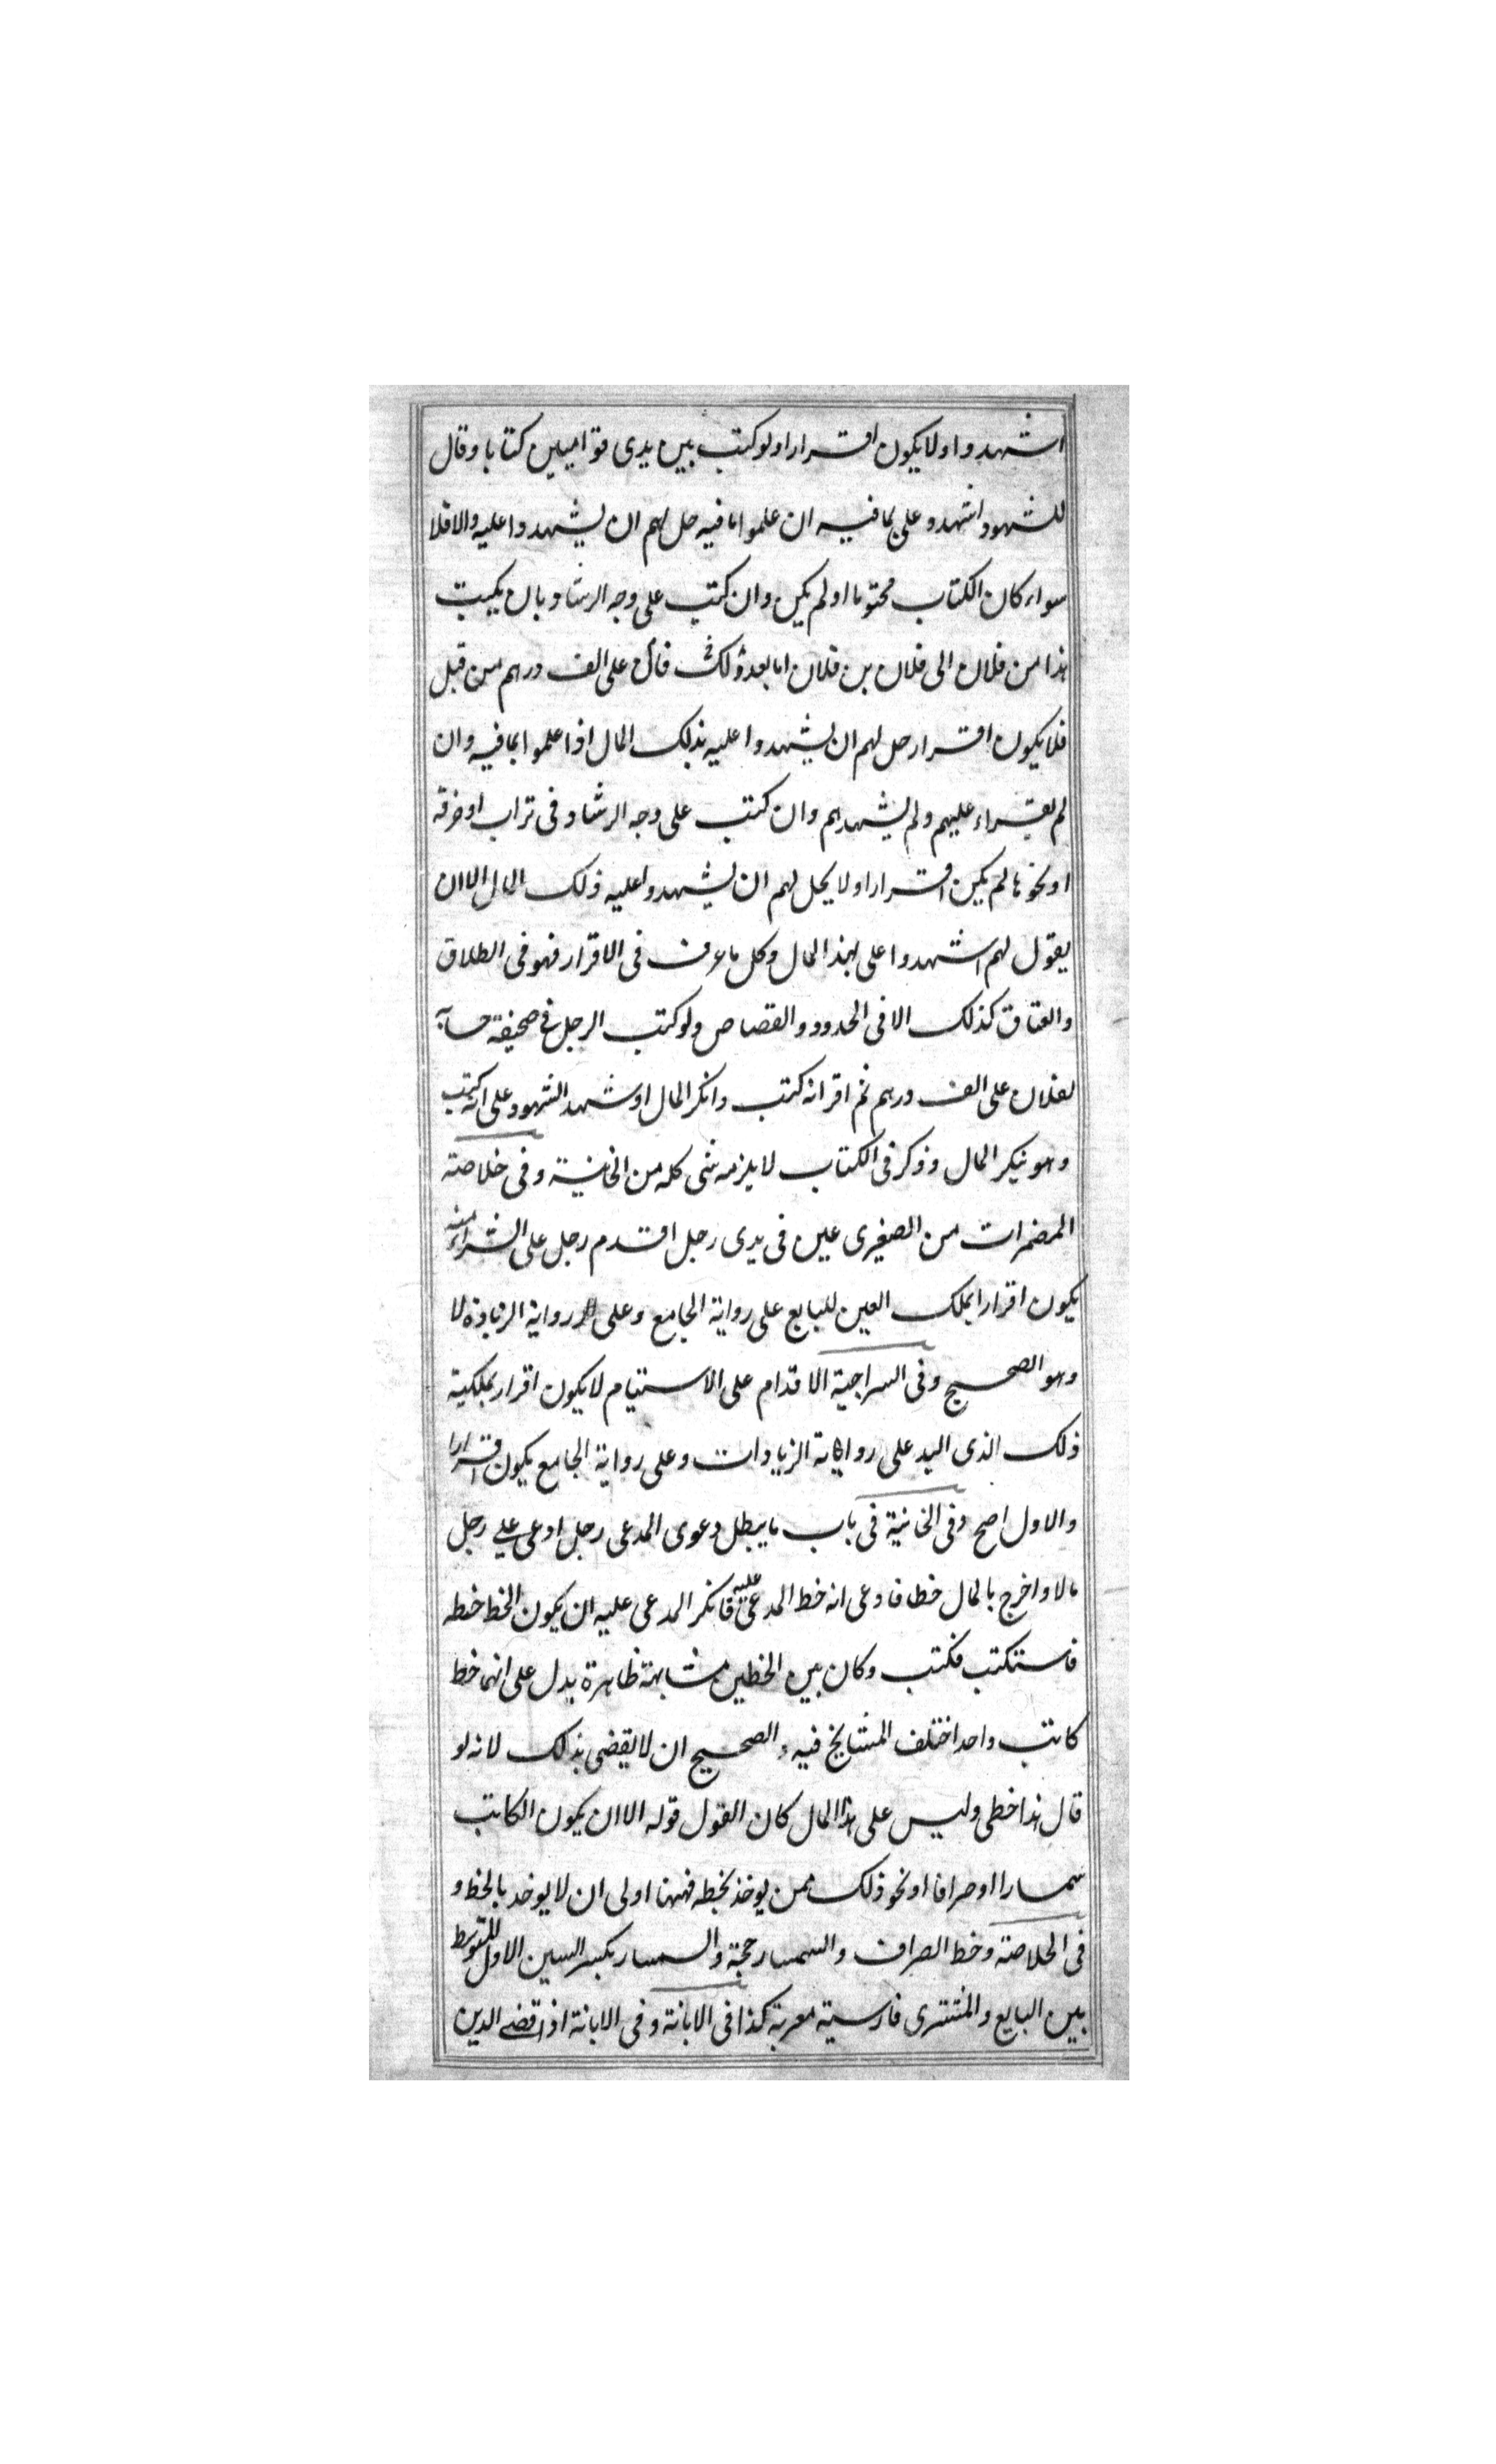 اشهدوا ولا يكون اقرارا ولو كتب بين يدى قوا ميين كتابا وقال
للشهود اشهدو على بما فيه ان علموا ما فيه حل لهم ان يشهدوا عليه والا فلا
سواء كان الكتاب مختوما او لم يكن وان كتب على وجه الرشاد بان يكتب
هذا من فلان الى فلان بن فلان اما بعد ذلك فان على الف درهم من قبل
فلا يكون اقرار حل لهم ان يشهدوا عليه بذلك المال اذا علموا بما فيه وان
لم يقراء عليهم ولم يشهدهم وان كتب على وجه الرشاد فى تراب او خرقة
او نحوها لم يكن اقرارا ولا يحل لهم ان يشهدوا عليه ذلك المال الا ان
يقول لهم اشهدوا على بهذ المال وكل ما عرف فى الاقرار فهو فى الطلاق
والعتاق كذلك الا فى الحدود والقصاص ولو كتب الرجل فى صحيفة حسابه
لفلان على الف درهم ثم اقر انه كتب وانكر المال او شهد الشهود على انه كتب
وهو ينكر المال وذكر فى الكتاب لا يلزمه شى كله من الخانية وفى خلاصة
المضمرات من الصغيرى عين فى يدى رجل اقدم رجل على الشراء منه
يكون اقرارا بملك العين للبايع على رواية الجامع وعلى رواية الزيادة لا
وهو الصحيح وفى السراجية الاقدام على الاستيام لا يكون اقرار بملكية
ذلك الذى اليد على رواية الزيادات وعلى رواية الجامع يكون اقرارا
والاول اصح وفى الخانية فى باب ما يبطل دعوى المدعى رجل ادعى على رجل
مالا واخرج بالمال خطا فادعى انه خط المدعى عليه فانكر المدعى عليه ان يكون الخط خطه
فاستكتب فكتب وكان بين الخطين مشابهة ظاهرة يدل على انهما خط
كاتب واحد اختلف المشايخ فيه والصحيح ان لا يقضى بذلك لانه لو
قال هذا خطى وليس على هذا المال كان القول قوله الا ان يكون الكاتب
سمسارا او صرافا او نحو ذلك ممن يوخذ بخطه فههنا اولى ان لا يوخد بالخط و
فى الخلاصة وخط الصراف والسمسار حجة والسمسار بكسر السين الاول المتوسط
بين البايع والمشترى فارسية معربة كذا فى الابانة وفى الابانة اذا قضى الدين